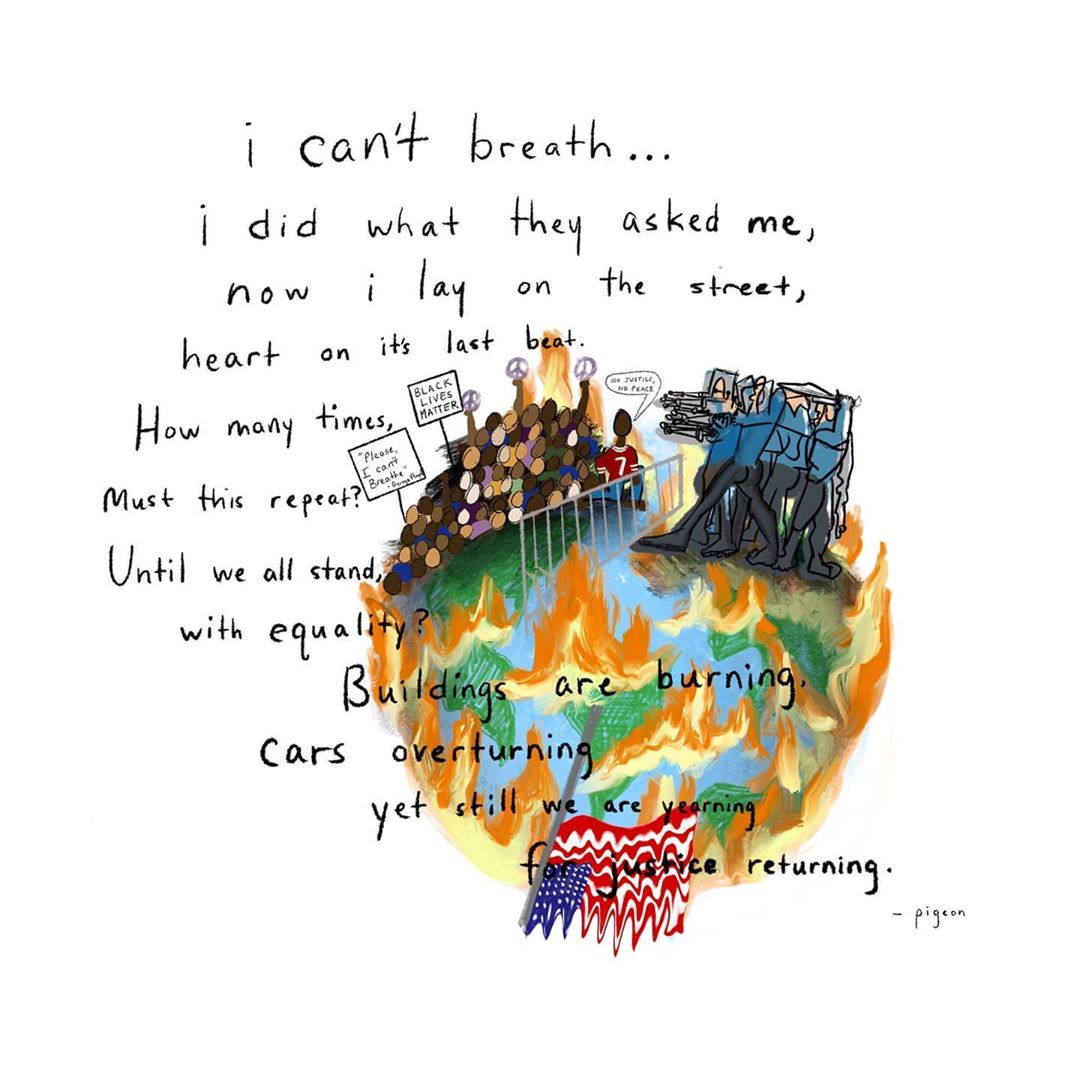 i can't breath...
i did what they asked me,
now i lay on the street,
heart on it's last beat.
How many times,
Must this repeat?
Until we all stand,
with equality?
Buildings are burning.
cars overturning
yet still we are yearning
for justice returning.
- pigeon
BLACK
LIVES
MATTER
"Please,
I can't
Breathe"
NO JUSTICE,
NO PEACE
7